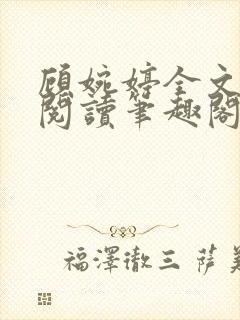 顧婉婷全文
閱讀筆趣閣
福澤徹三 薩